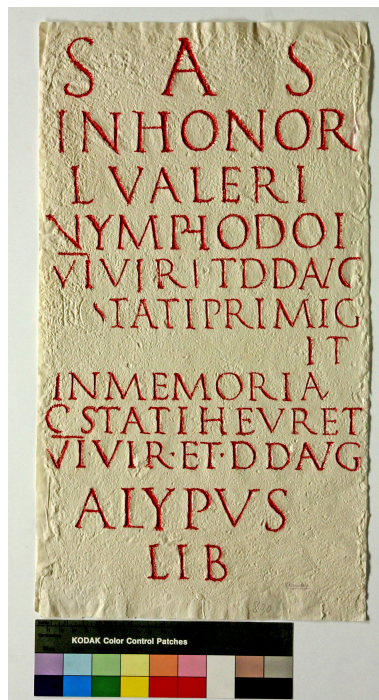 S A S
IN HONOR
L VALERI
NYMPHODOI
VIVIRI T DD AVG
STATI PRIMIG
IT
IN MEMORIA
C STATI HEVRET
VIVIR·ET·DD AVG
ALYPVS
LIB
KODAK Color Control Patches